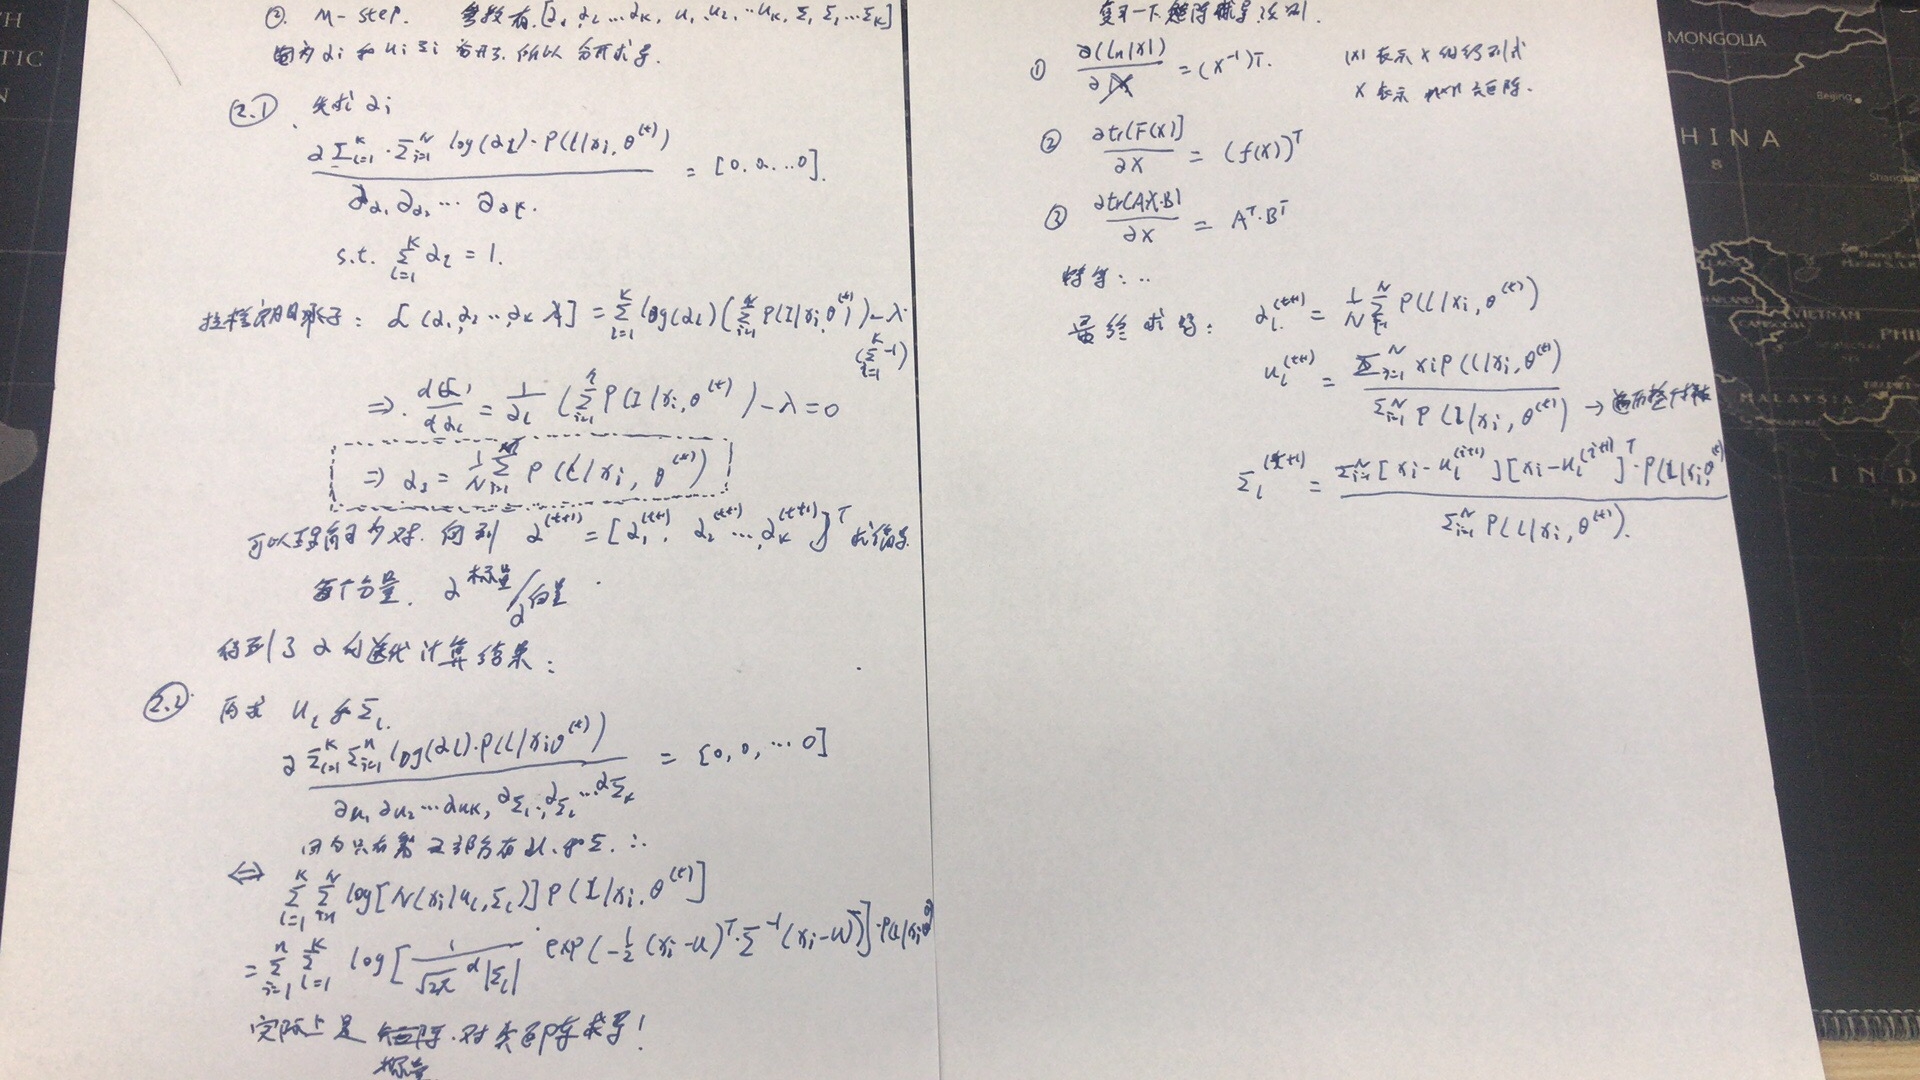 ②. M-step. 参数有 [α₁, α₂ … αₖ, u₁, u₂, … uₖ, Σ₁ Σ₂ … Σₖ]
因为 αi 和 ui Σi 分开了, 所以 分开求导.
(2.1) 先求 αi
∂ Σ_{l=1}^{K} · Σ_{i=1}^{N} log(αl) · P(l|xi, θ^(t)) / ∂α₁ ∂α₂ … ∂αK. = [0, 0, … 0].
s.t. Σ_{l=1}^{K} αl = 1.
拉格朗日乘子: L [α₁, α₂ …, αK λ] = Σ_{l=1}^{K} log(αl) (Σ_{i=1}^{N} P(l|xi, θ^(t)) – λ·
(Σ_{l=1}^{K} –1)
⇒. d(L) / dαl = 1/αl (Σ_{i=1}^{N} P(l|xi, θ^(t)) – λ = 0
⇒ αl = 1/N Σ_{i=1}^{N} P(l|xi, θ^(t))
α^(t+1) = [α₁^(t+1), α₂^(t+1) …, αK^(t+1)]^T
每个分量. ∂标量/∂向量
得到了 α 的迭代计算结果:
(2.2) 再求 ul 和 Σl.
∂ Σ_{l=1}^{K} Σ_{i=1}^{n} log(αl)·P(l|xi θ^(t)) / ∂u₁ ∂u₂ … ∂uK, ∂Σ₁, ∂Σ₂ … ∂ΣK = [0, 0, … 0]
因为只有第二部分有 u. 和 Σ. ∴
⇔ Σ_{l=1}^{K} Σ_{i=1}^{N} log[N(xi|ul, Σl)] P(l|xi, θ^(t))
= Σ_{i=1}^{n} Σ_{l=1}^{K} log[ 1/(√2π^d |Σl|) · exp(–1/2 (xi–u)^T · Σ^–1 (xi–u))] · P(l|xi θ^(t))
实际上是 对 矩阵求导!
标量
复习一下矩阵求导法则.
① ∂(ln|X|) / ∂X = (X^–1)^T. |X| 表示 X 的行列式
X 表示 n×n 矩阵.
② ∂tr[F(X)] / ∂X = (f(X))^T
③ ∂tr(AX·B) / ∂X = A^T·B^T
等等: ..
最终求得: αl^(t+1) = 1/N Σ_{i=1}^{N} P(l|xi, θ^(t))
ul^(t+1) = Σ_{i=1}^{N} xi P(l|xi, θ^(t)) / Σ_{i=1}^{N} P(l|xi, θ^(t)) → 遍历整个样本
Σl^(t+1) = Σ_{i=1}^{N} [xi – ul^(i+1)] [xi – ul^(i+1)]^T · P(l|xi, θ^(t)) / Σ_{i=1}^{N} P(l|xi, θ^(t)).
MONGOLIA
Beijing
CHINA
8
VIETNAM
CAMBODIA
MALAYSIA